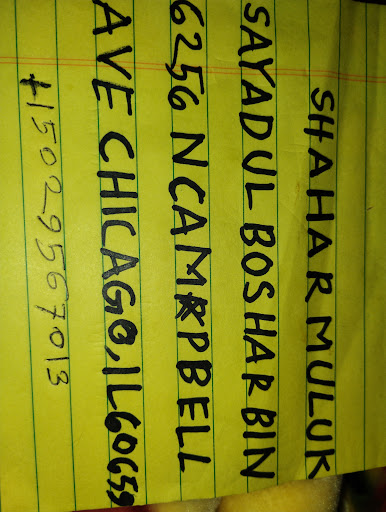 SHAHAR MULUK
SAYADUL BOSHAR BIN
6256 N CAMPBELL
AVE CHICAGO, IL 60659
+15029567013